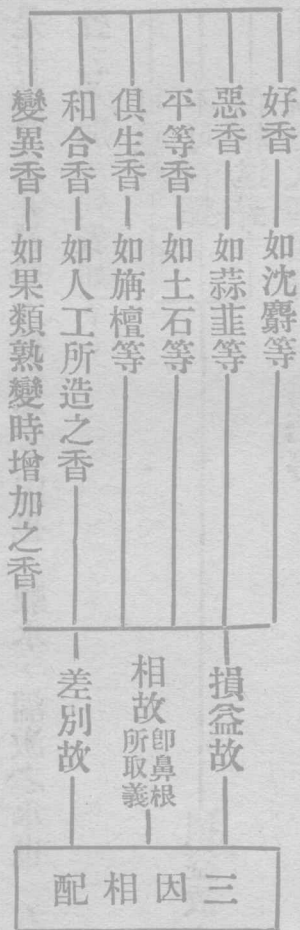 好香 如沈麝等
惡香 如蒜韭等
平等香 如土石等
俱生香 如旃檀等
和合香 如人工所造之香
變異香 如果類熟變時增加之香
損益故
相故 卽鼻根所取義
差別故
三因相配